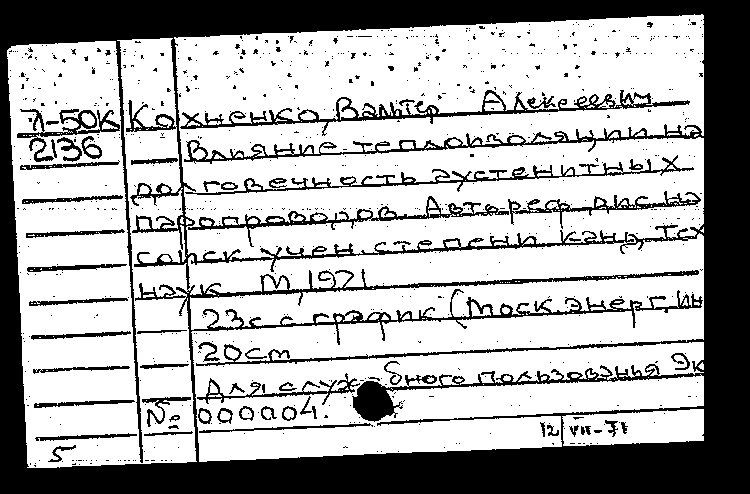 Л-50К Кохненко, Вальтер Алексеевич
2136 Влияние теплоизоляции на
долговечность аустенитных
паропроводов. Автореф. дис на
соиск учен. степени канд. тех
наук М, 1971
23с с график (Моск. энерг. ин
20cm
Для служебного пользования Эк
№ 000004.
12/VII-71
5